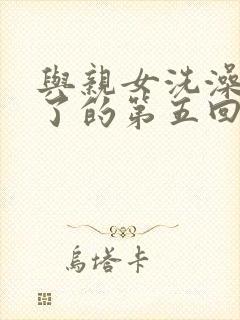 與親女洗澡
了的第五回
烏塔卡